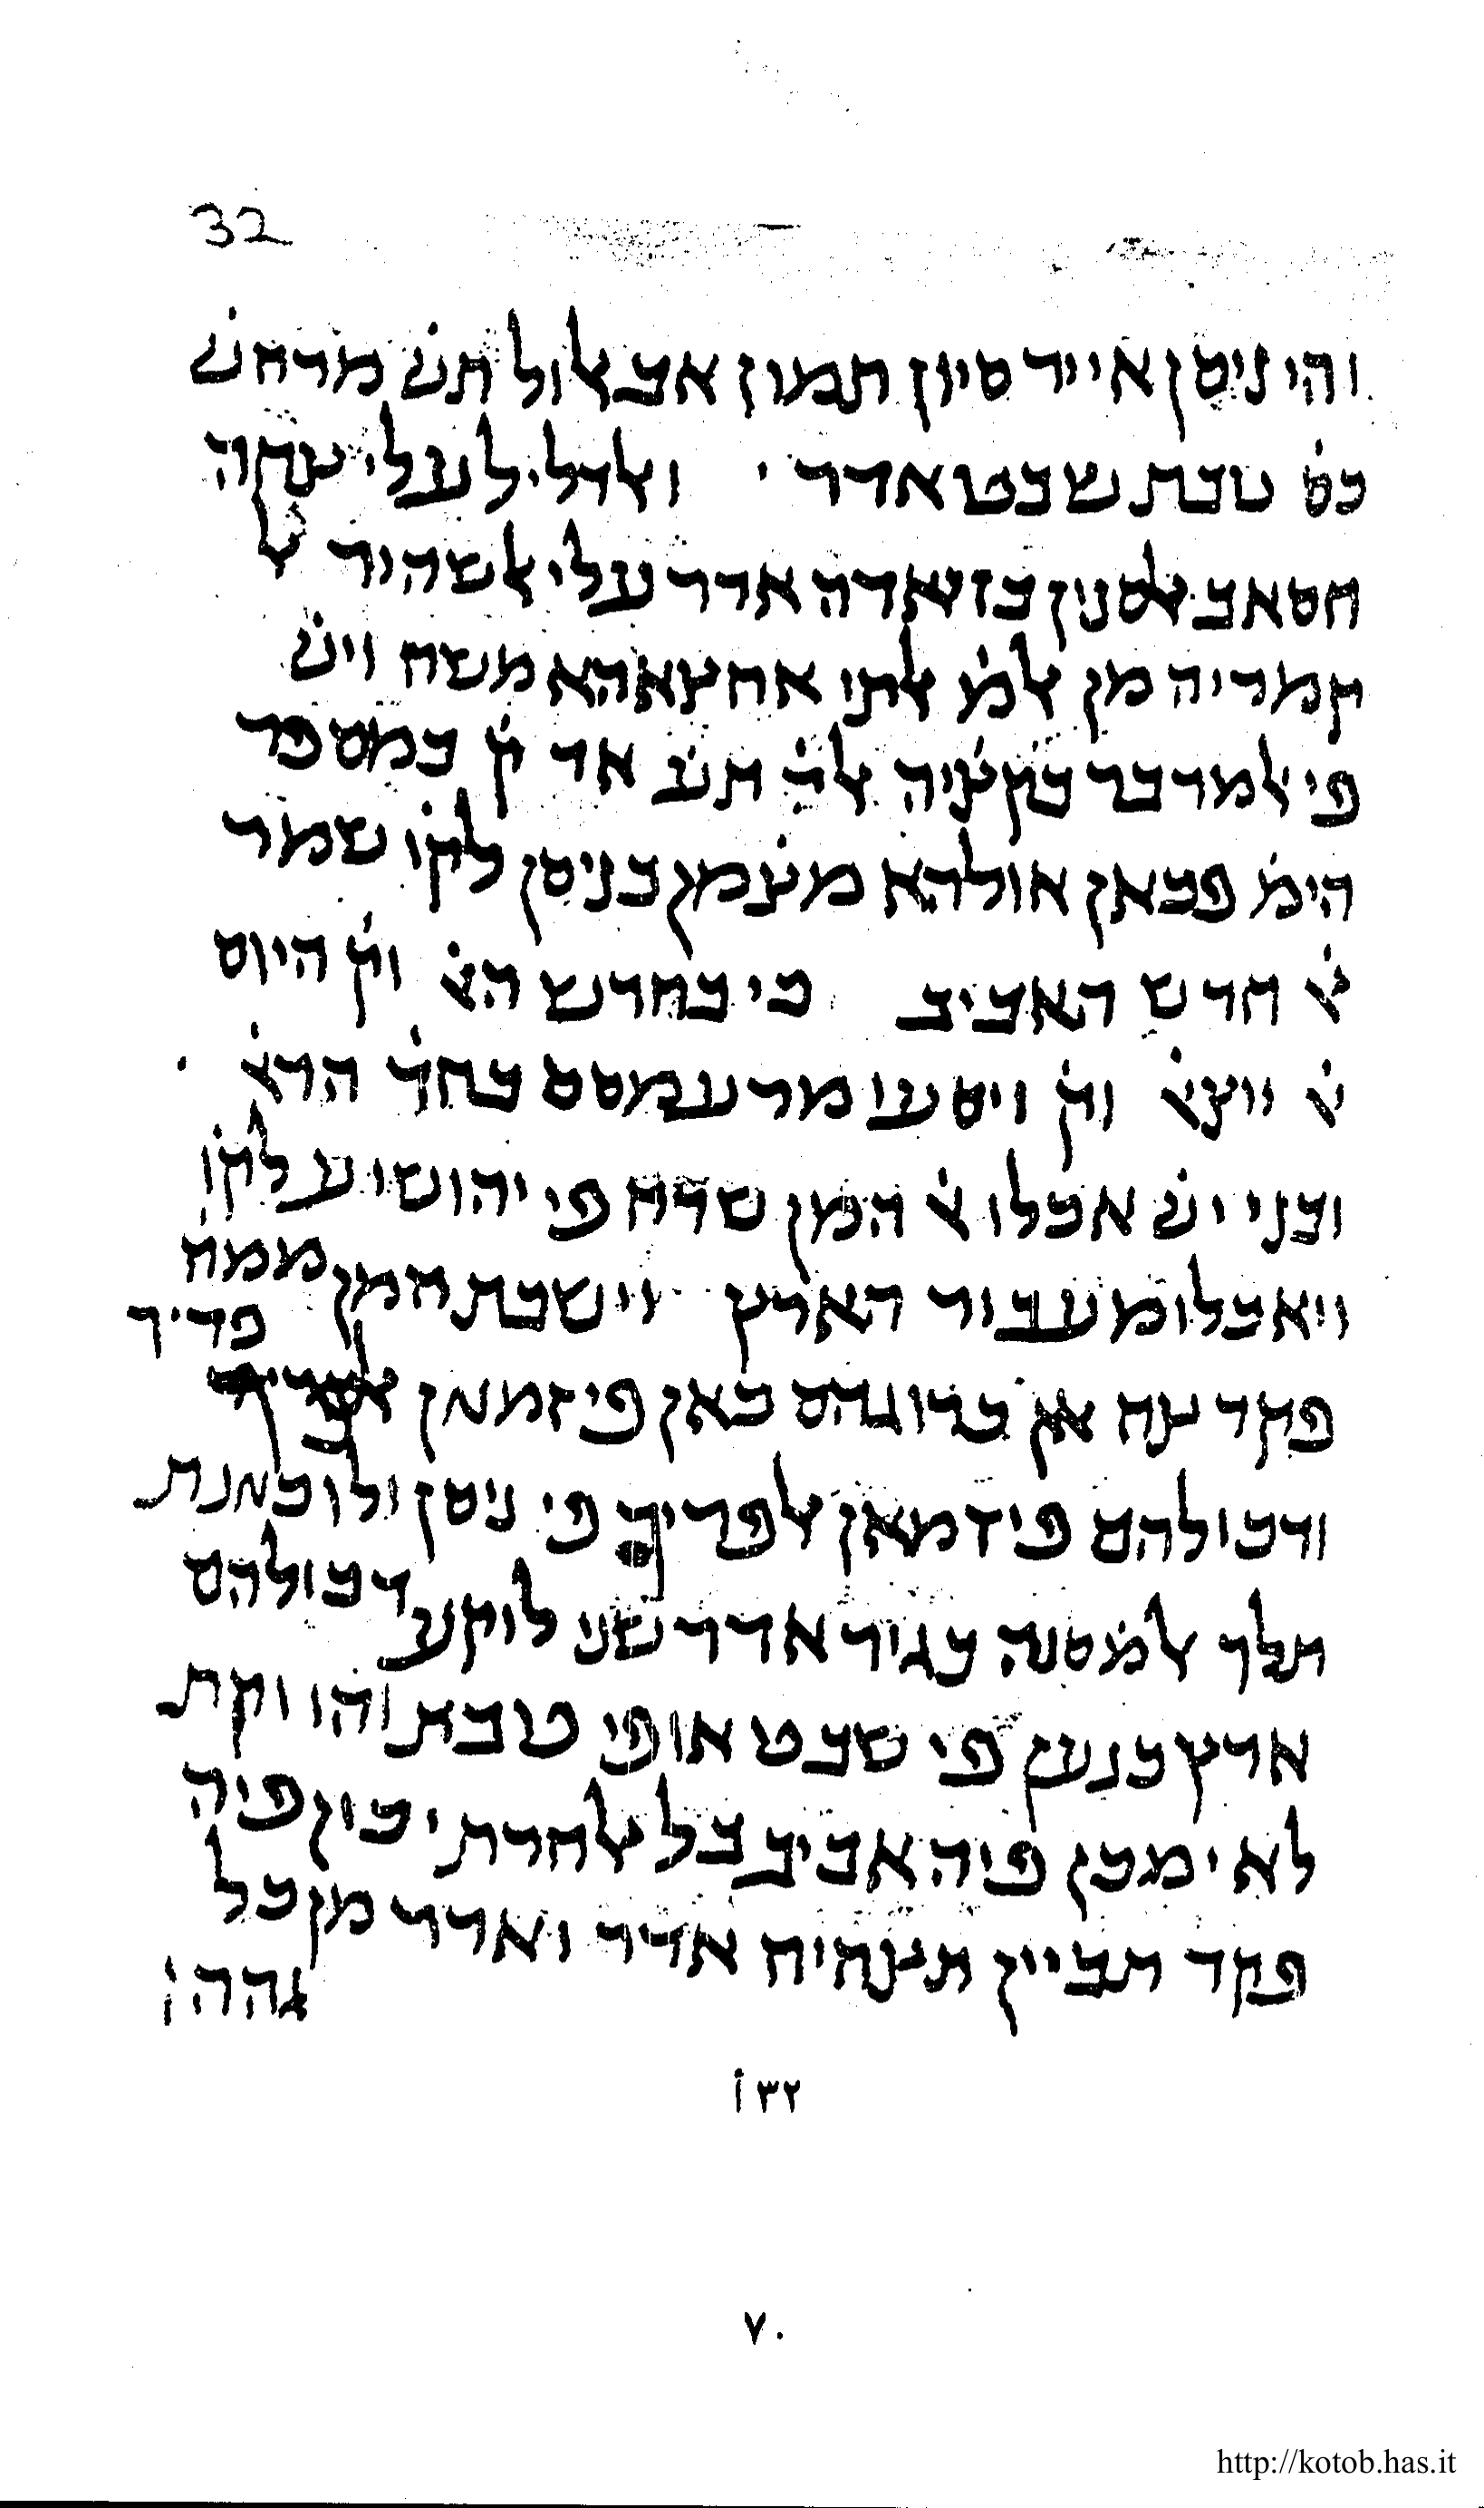 32
והי ניסן אייר סיון תמוז אב אלול תש̇ מרחש̇
כס̇ טבת שבט אדר ואלדליל עלי צחה
חסאב אלסנין בזיאדה אדר עלי אלשהור אל
קמריה מן אלמ̇ אלתי אחצאהא משה ויש̇
פי אלמדבר בקציה אלר̇ תע̇ אד ק̇ במספר
הימ̇ פכאן אולהא מצ̇מן בניסן לקו̇ שמר
א̇ חדש האביב כי בחדש הא̇ וק̇ היום
א̇ יוצא̇ וק̇ ויסעו מרעמסס בחד̇ הרא̇
ובני יש̇ אכלו א̇ המן שרח פי יהושוע לקו̇
ויאכלו מעבור הארץ וישבת המן ממח̇
פריך
פקד צח אן כרוגהם כאן פי זמאן
ודכולהם פי זמאן אלפריך פי ניסן ולו כאנת
תלך אלמסנה בגיר אדר שני לוקע דכולהם
ארץ כנען פי שבט או פי טבת והו וקת
לא ימכן פיה אביב בל אלחרת יכון פיה
פקד תביין תצחיח אדר ואדר מן כל
גהה ו
٣٢ أ
٧٠
http://kotob.has.it